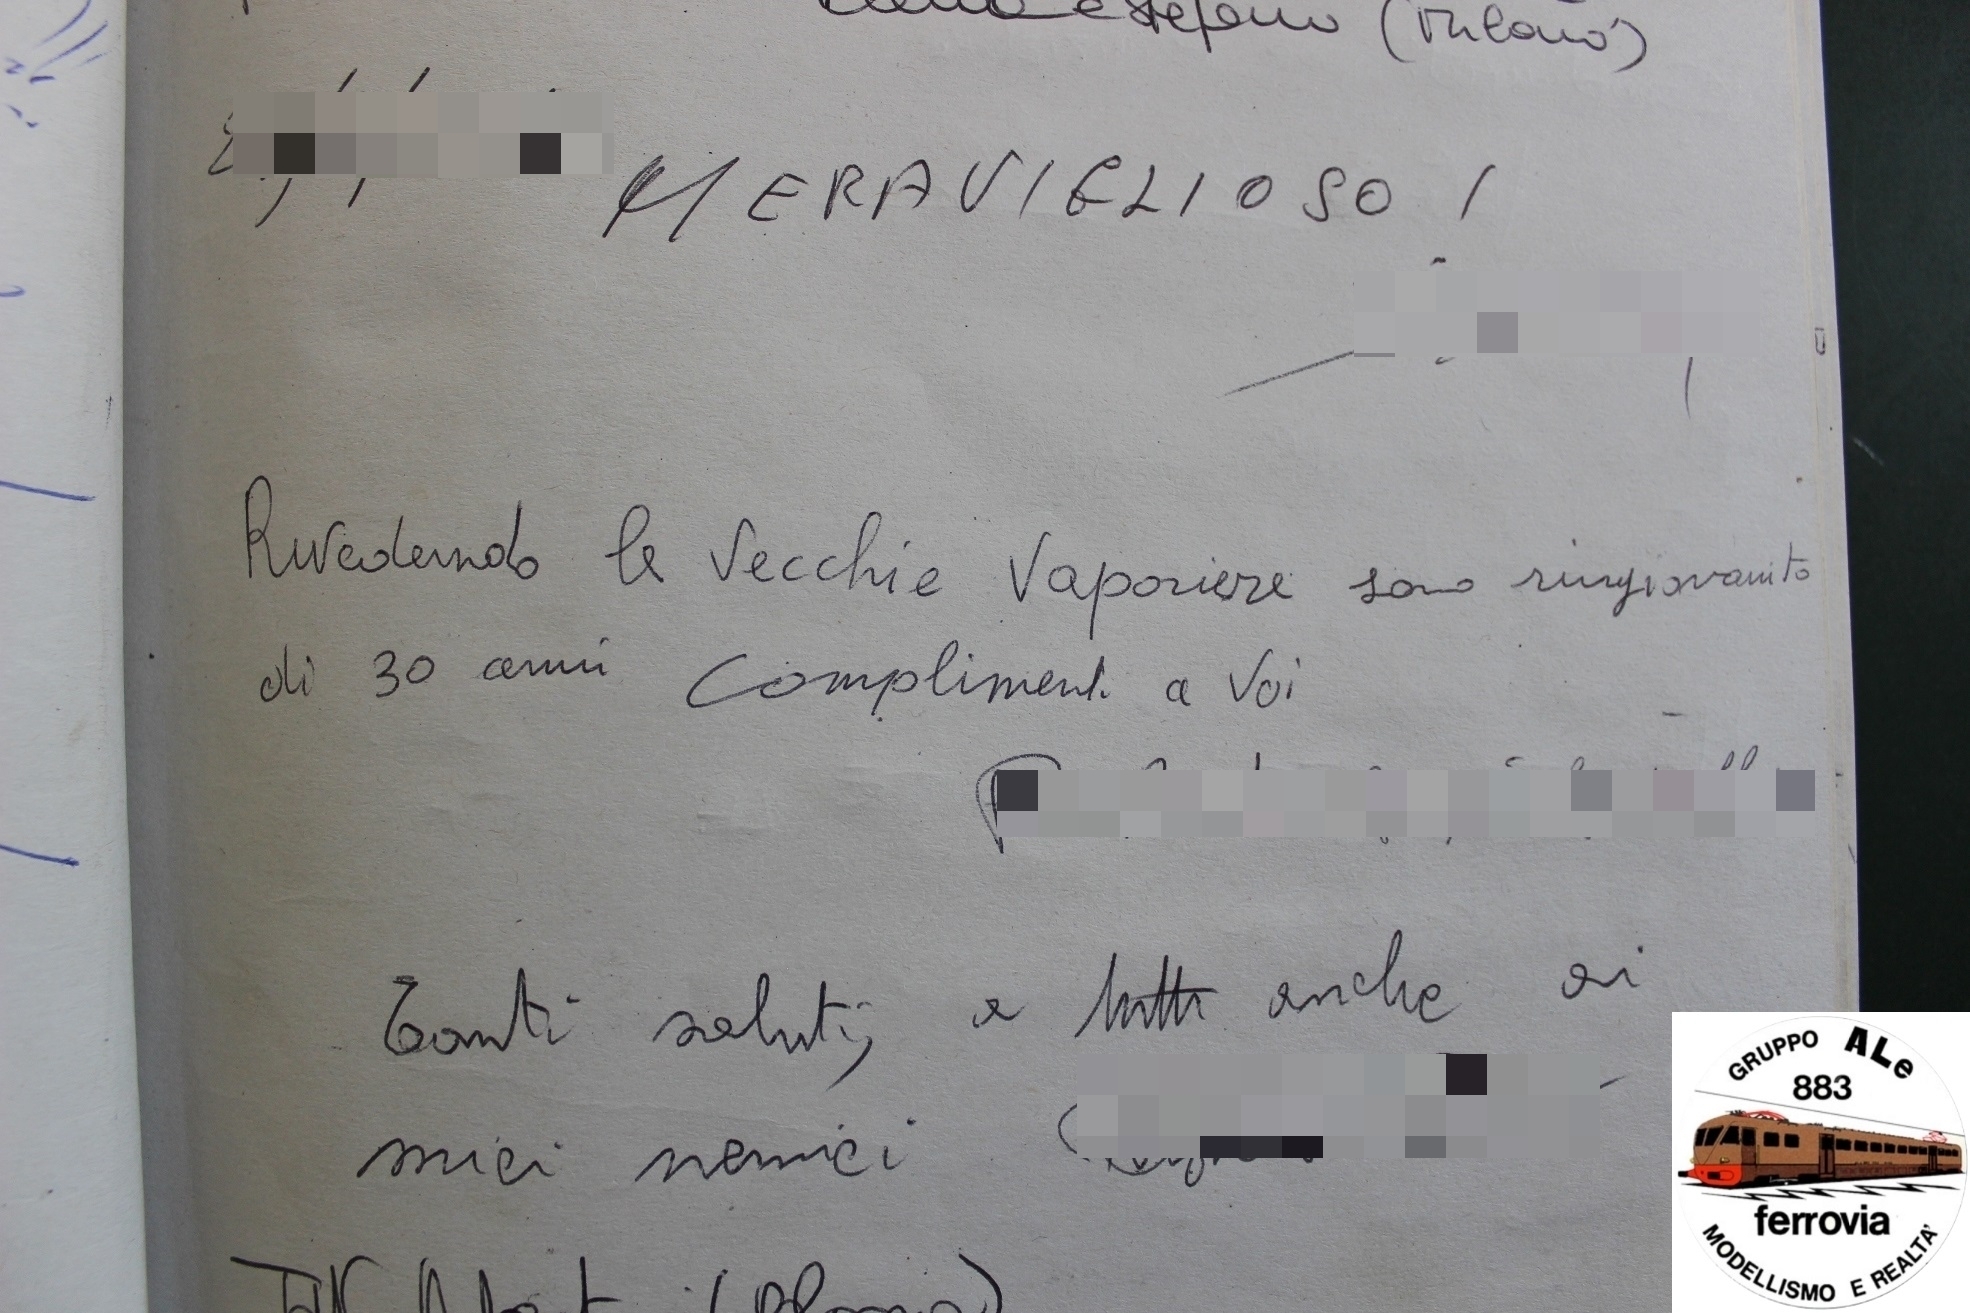 e Stefano (Milano)
MERAVIGLIOSO !
Rivedendo le vecchie vaporiere sono ringiovanito
di 30 anni Complimenti a voi
Tanti saluti, a tutti anche ai
miei nemici
GRUPPO ALe
883
ferrovia
MODELLISMO E REALTA'